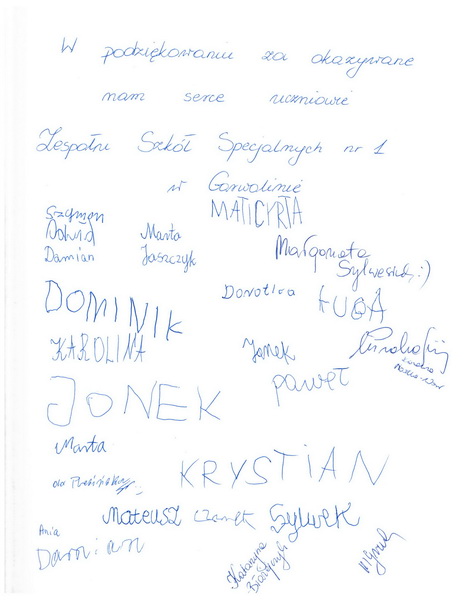 W podziękowaniu za okazywane
nam serce uczniowie
Zespołu Szkół Specjalnych nr 1
w Garwolinie
MATICYRTA
Szymon
Dawid
Damian
Marta
Jaszczyk
Małgorzata
Sylwesiuk :)
DOMINIK
Dorotka
ŁUGA
KAROLINA
Janek
paweł
JONEK
Marta
KRYSTIAN
Mateusz Czarek Sylwek
Ania
Damian
Katarzyna